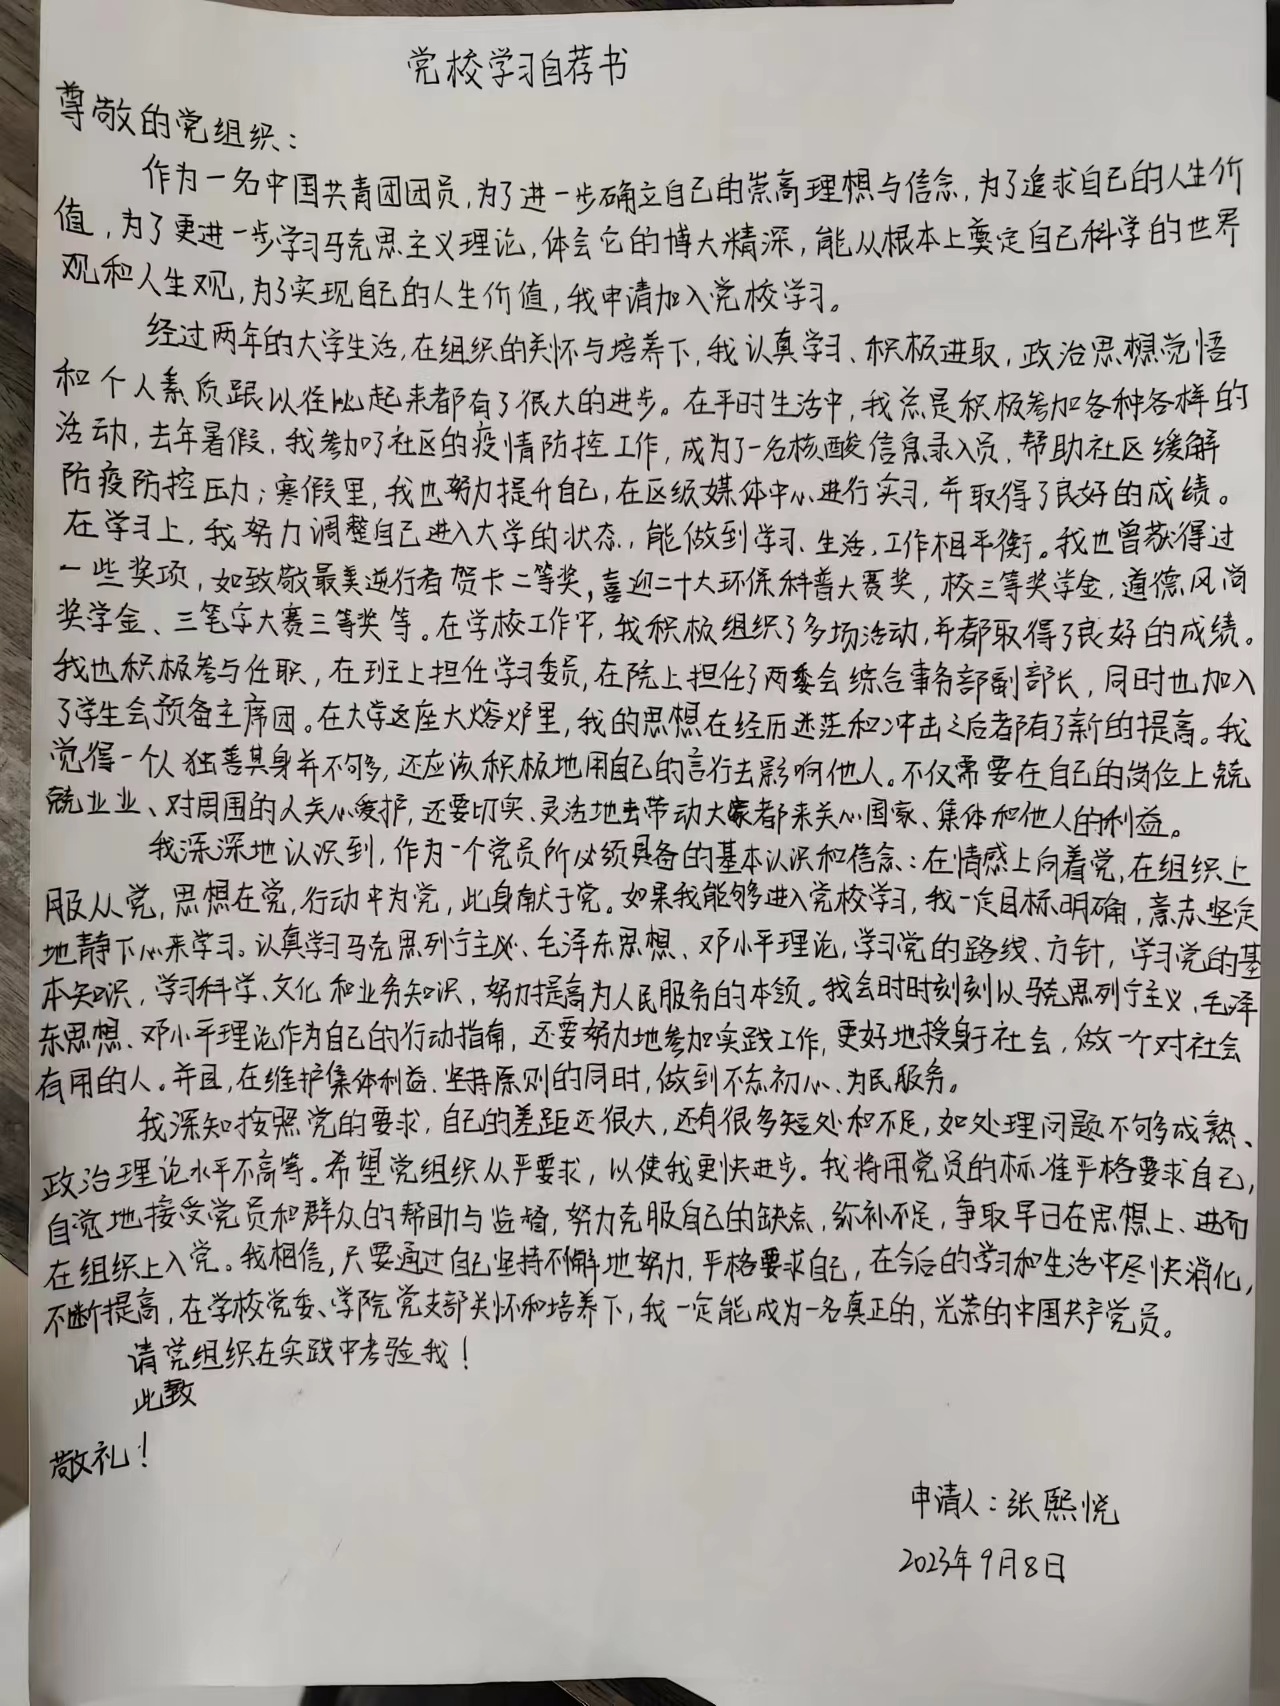 党校学习自荐书
尊敬的党组织：
作为一名中国共青团团员，为了进一步确立自己的崇高理想与信念，为了追求自己的人生价
值，为了更进一步学习马克思主义理论，体会它的博大精深，能从根本上奠定自己科学的世界
观和人生观，为了实现自己的人生价值，我申请加入党校学习。
经过两年的大学生活，在组织的关怀与培养下，我认真学习、积极进取，政治思想觉悟
和个人素质跟以往比起来都有了很大的进步。在平时生活中，我总是积极参加各种各样的
活动，去年暑假，我参加了社区的疫情防控工作，成为了一名核酸信息录入员，帮助社区缓解
防疫防控压力；寒假里，我也努力提升自己，在区级媒体中心进行实习，并取得了良好的成绩。
在学习上，我努力调整自己进入大学的状态，能做到学习、生活，工作相平衡。我也曾获得过
一些奖项，如致敬最美逆行者贺卡二等奖，喜迎二十大环保科普大赛奖，校三等奖学金，道德风尚
奖学金、三笔字大赛三等奖等。在学校工作中，我积极组织了多场活动，并都取得了良好的成绩。
我也积极参与任职，在班上担任学习委员，在院上担任了两委会综合事务部副部长，同时也加入
了学生会预备主席团。在大学这座大熔炉里，我的思想在经历迷茫和冲击之后都有了新的提高。我
觉得一个人独善其身并不够，还应该积极地用自己的言行去影响他人。不仅需要在自己的岗位上兢
兢业业、对周围的人关心爱护，还要切实、灵活地去带动大家都来关心国家、集体和他人的利益。
我深深地认识到，作为一个党员所必须具备的基本认识和信念：在情感上向着党，在组织上
服从党，思想在党，行动中为党，此身献于党。如果我能够进入党校学习，我一定目标明确，意志坚定
地静下心来学习。认真学习马克思列宁主义、毛泽东思想、邓小平理论，学习党的路线、方针，学习党的基
本知识，学习科学、文化和业务知识，努力提高为人民服务的本领。我会时时刻刻以马克思列宁主义、毛泽
东思想、邓小平理论作为自己的行动指南，还要努力地参加实践工作，更好地投身于社会，做一个对社会
有用的人。并且，在维护集体利益、坚持原则的同时，做到不忘初心、为民服务。
我深知按照党的要求，自己的差距还很大，还有很多短处和不足，如处理问题不够成熟、
政治理论水平不高等。希望党组织从严要求，以使我更快进步。我将用党员的标准严格要求自己，
自觉地接受党员和群众的帮助与监督，努力克服自己的缺点，弥补不足，争取早日在思想上、进而
在组织上入党。我相信，只要通过自己坚持不懈地努力，严格要求自己，在今后的学习和生活中尽快消化，
不断提高，在学校党委、学院党支部关怀和培养下，我一定能成为一名真正的，光荣的中国共产党员。
请党组织在实践中考验我！
此致
敬礼！
申请人：张熙悦
2023年9月8日